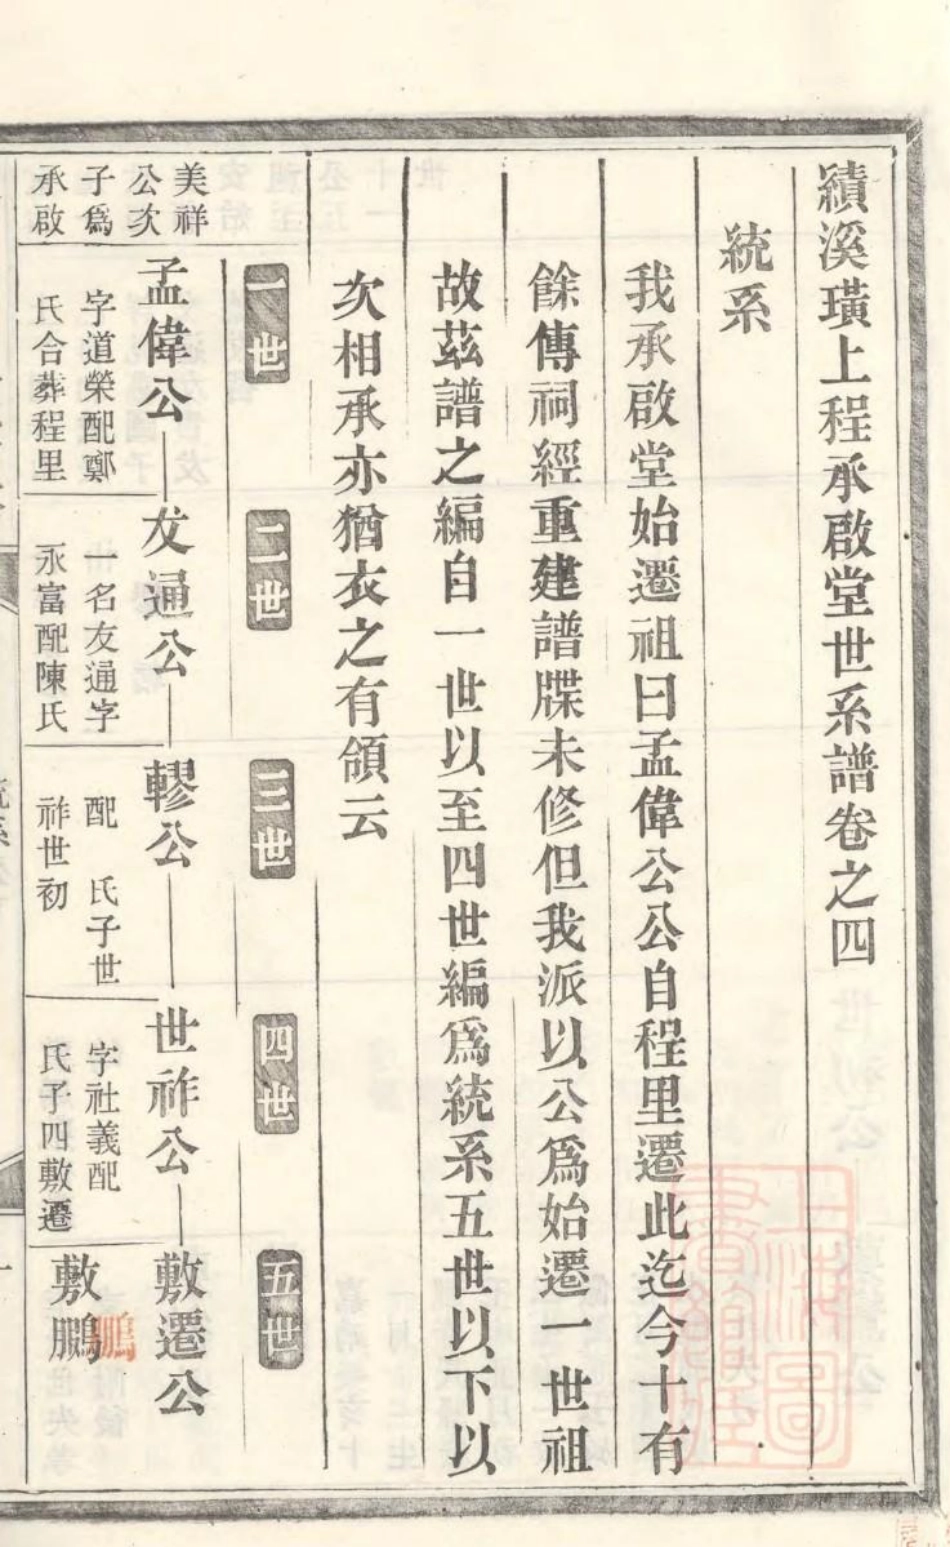 績溪璜上程承啟堂世系譜卷之四
統系
我承啟堂始遷祖曰孟偉公公自程里遷此迄今十有
餘傳祠經重建譜牒未修但我派以公爲始遷一世祖
故茲譜之編自一世以至四世編爲統系五世以下以
次相承亦猶衣之有領云
一世
二世
三世
四世
五世
美祥
公次
子爲
承啟
孟偉公
字道榮配鄭
氏合葬程里
友通公
一名友通字
永富配陳氏
轇公
配 氏子世
祚世初
世祚公
字社義配
氏子四敷遷
敷遷公
敷鵬
鵬
上海圖
書館藏